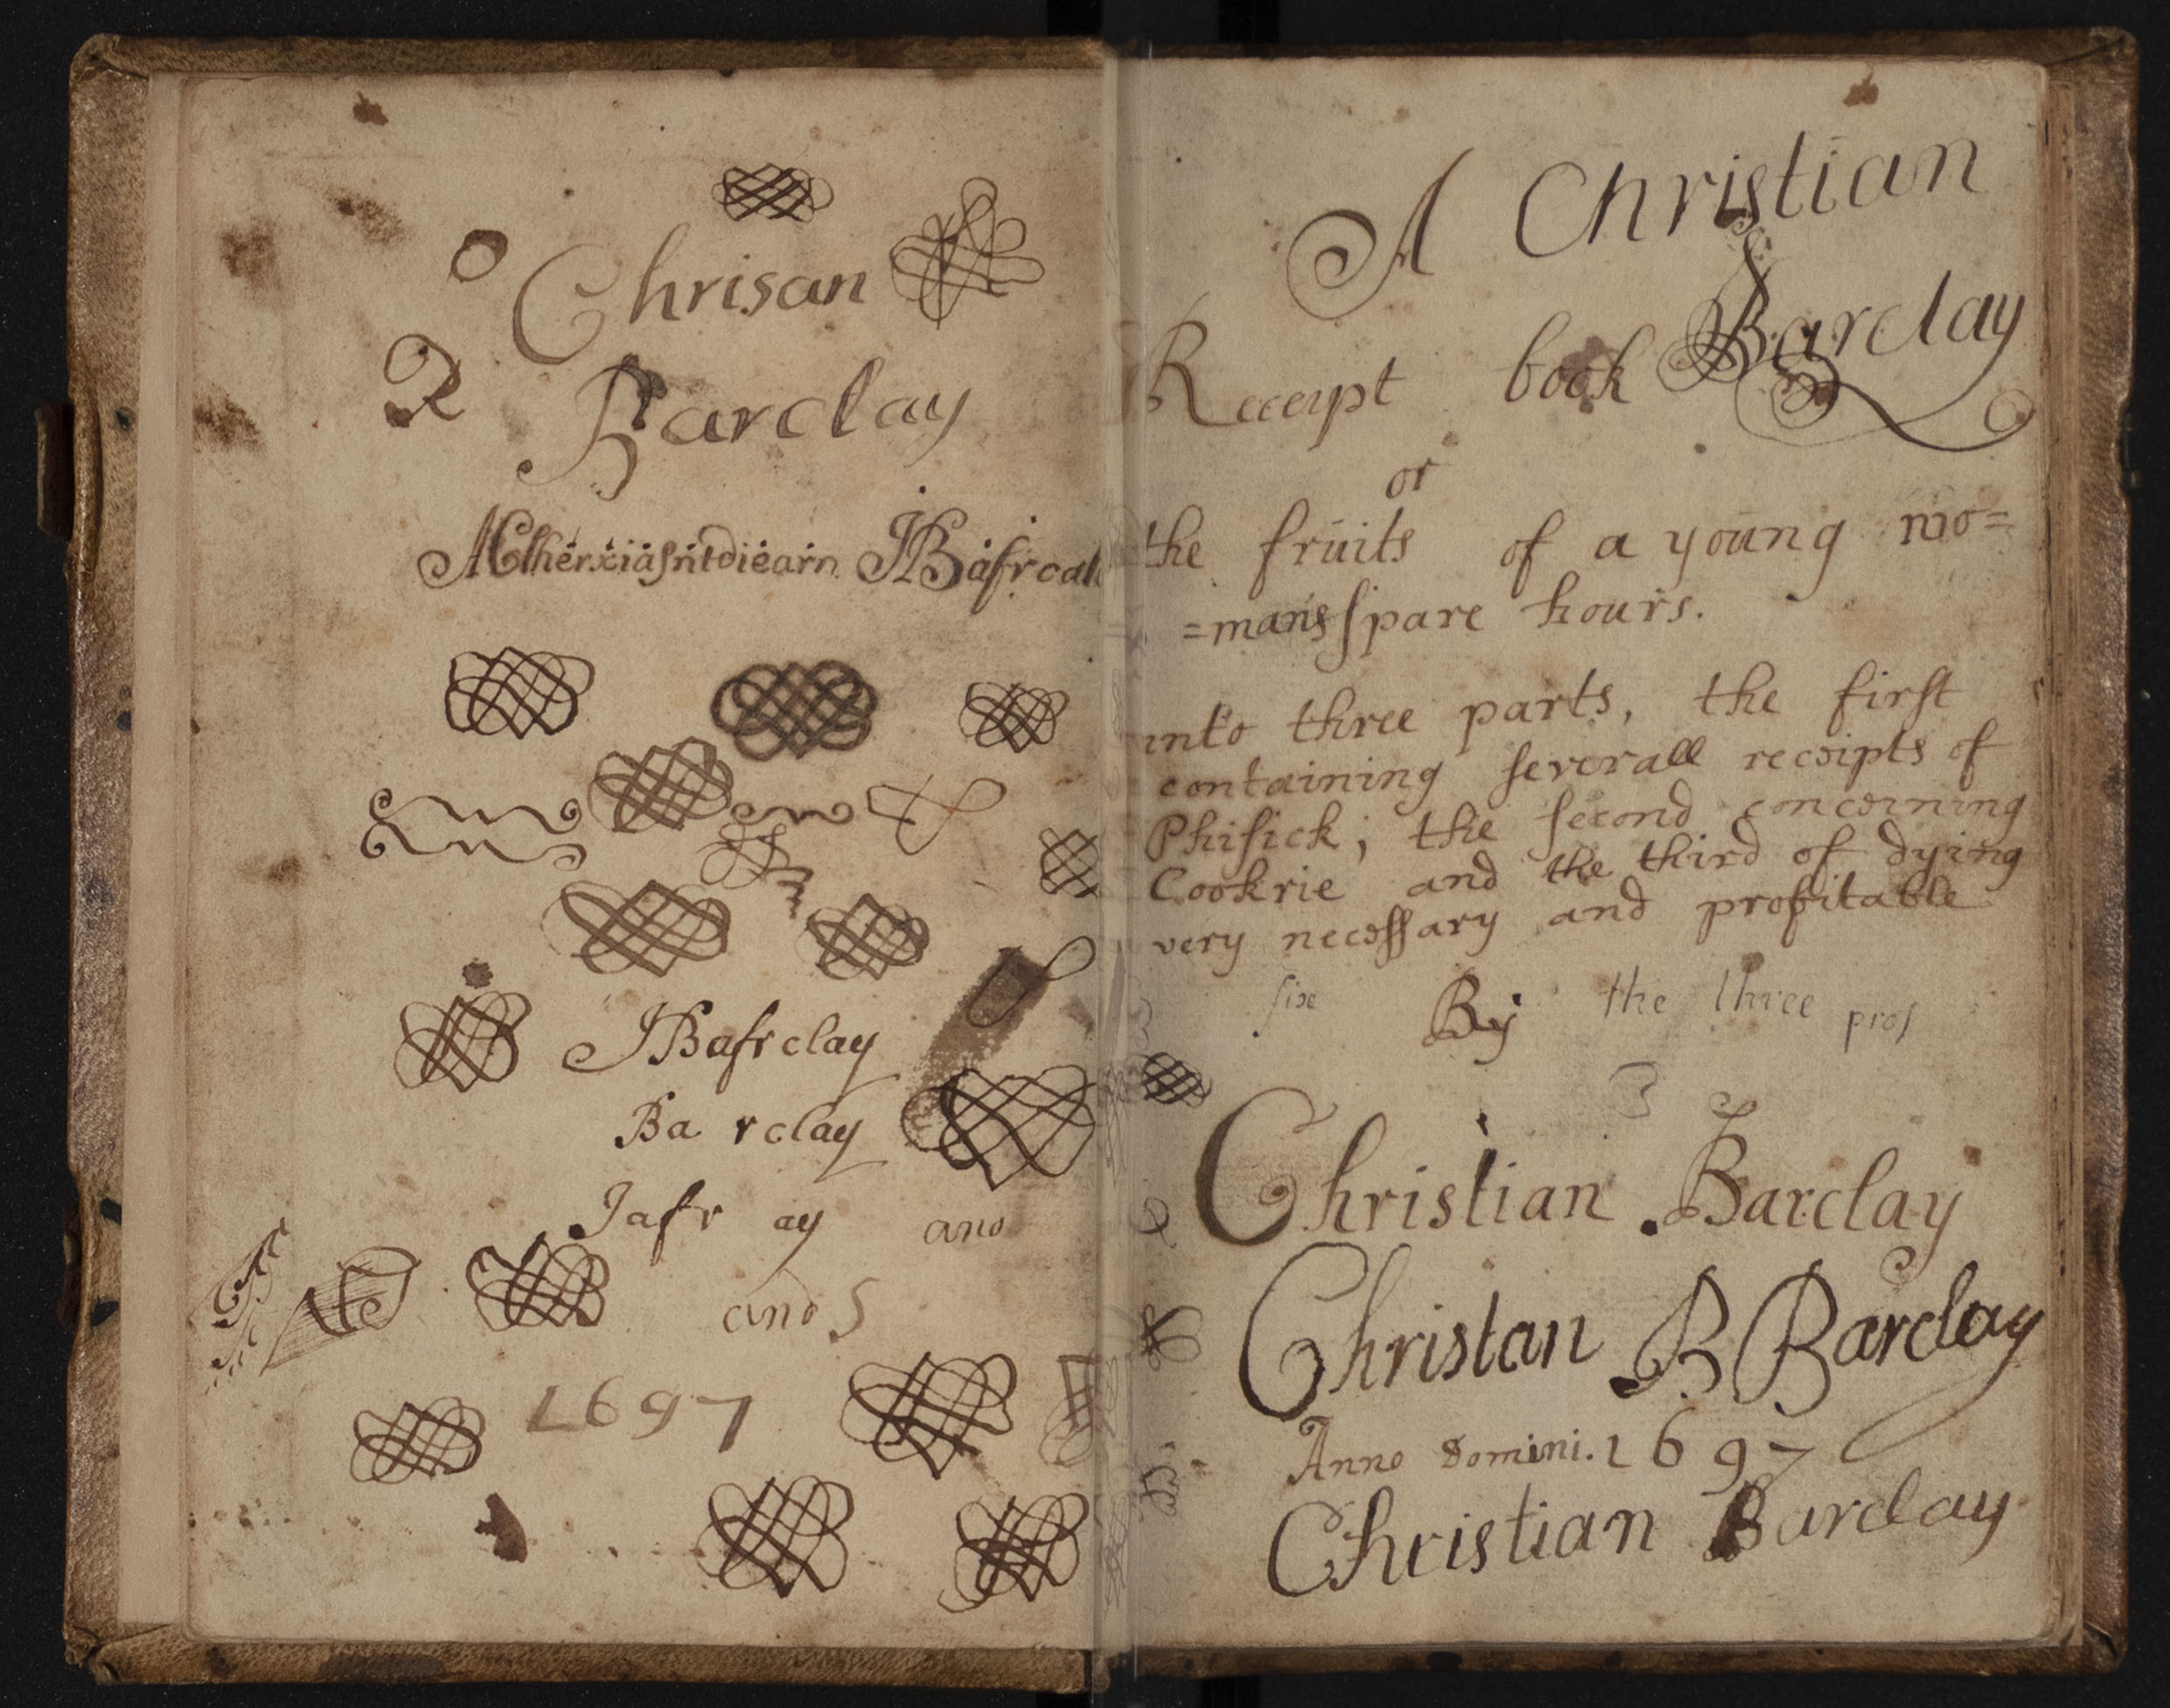 Chrisan
Barclay
JBafrclay
Ba rclay
Jafr ay and
and S
1697
A Christian
Barclay
Receipt book
or
the fruits of a young wo=
=mans ſpare hours.
into three parts, the firſt
containing ſeverall receipts of
Phiſick; the ſecond concerning
Cookrie and the third of dying
very neceſſary and profitable
ſix By the three prof
3
Christian Barclay
Christan B Barclay
Anno Domini. 1697
Christian Barclay